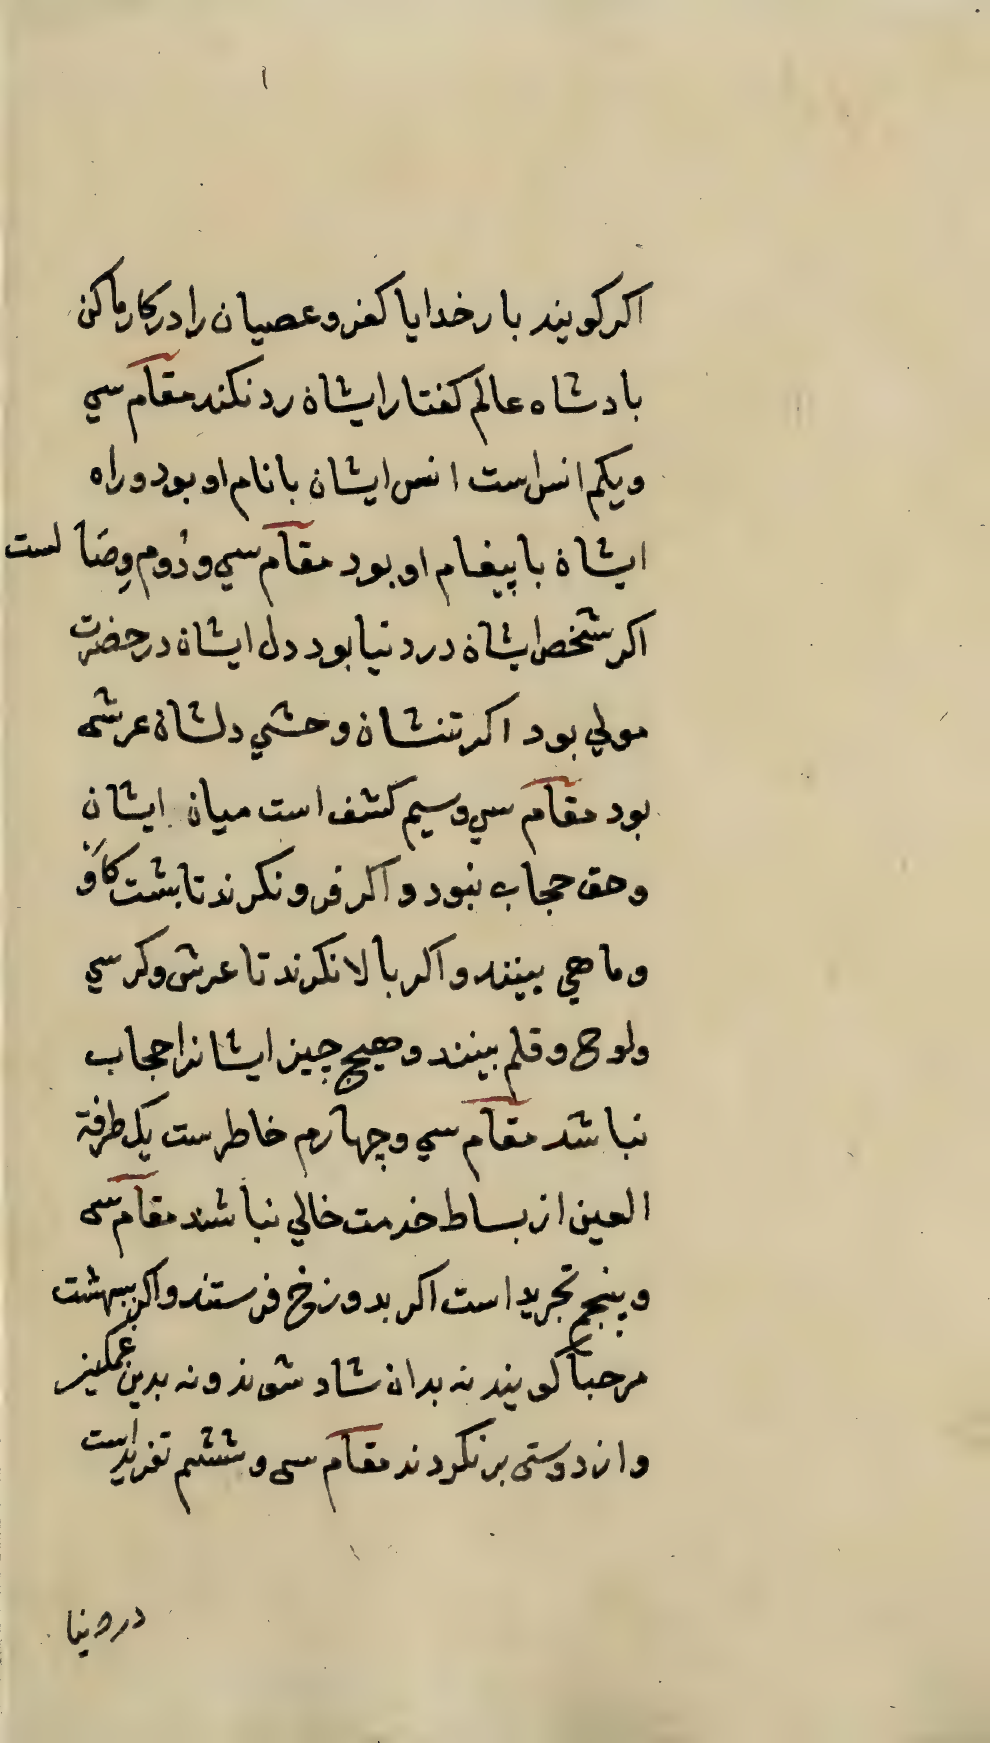 اکر کویند بار خدایا کفر و عصیان را در کار ما کن
بادشاه عالم کفتار ایشان رد نکند مقام سي
و یکم انس است انس ایشان با نام او بود و راه
ایشان با پیغام او بود مقام سي و دُوم وِصَالست
اکر شخص ایشان در دنیا بود دل ایشان در حضرت
مولي بود اکر تنشان وحشي دلشان عرشی
بود مقام سي و سیم کشف است میان ایشان
و حق حجاب نبود و اکر فرو نکرند تا بشت کاو
و ماهي بینند و اکر بالا نکرند تا عرش و کرسي
و لوح و قلم بینند و هیچ چیز ایشانرا حجاب
نباشد مقام سي و چهارم خاطرست یک طرفة
العین از بساط خدمت خالي نباشند مقام سی
و پنجم تجرید است اکر بدوزخ فرستند و اکر ببهشت
مرحبا کویند نه بدان شاد شوند و نه بدین غمکین
و از دوستی برنکردند مقام سی و ششم تفرید است
در دنیا